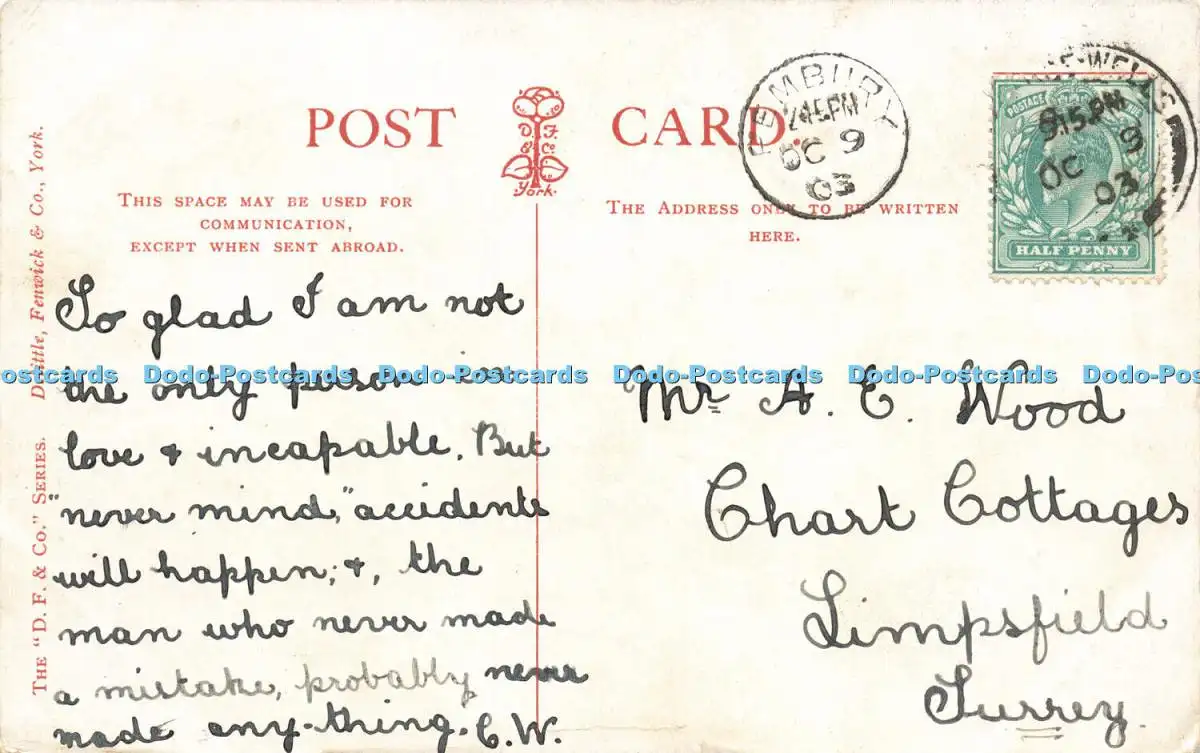 POST CARD.
D. F. & Co. York.
THIS SPACE MAY BE USED FOR
COMMUNICATION,
EXCEPT WHEN SENT ABROAD.
THE ADDRESS ONLY TO BE WRITTEN
HERE.
PEMBURY
2.45PM
OC 9
03
9.15PM
OC 9
03
POSTAGE
HALF PENNY
THE "D. F. & CO." SERIES. Doolittle, Fenwick & Co., York.
So glad I am not
the only person in
love & incapable. But
"never mind," accidents
will happen; &, the
man who never made
a mistake, probably never
made any-thing. C.W.
Mr A. E. Wood
Chart Cottages
Limpsfield
Surrey.
Dodo-Postcards Dodo-Postcards Dodo-Postcards Dodo-Postcards Dodo-Postcards Dodo-Postcards